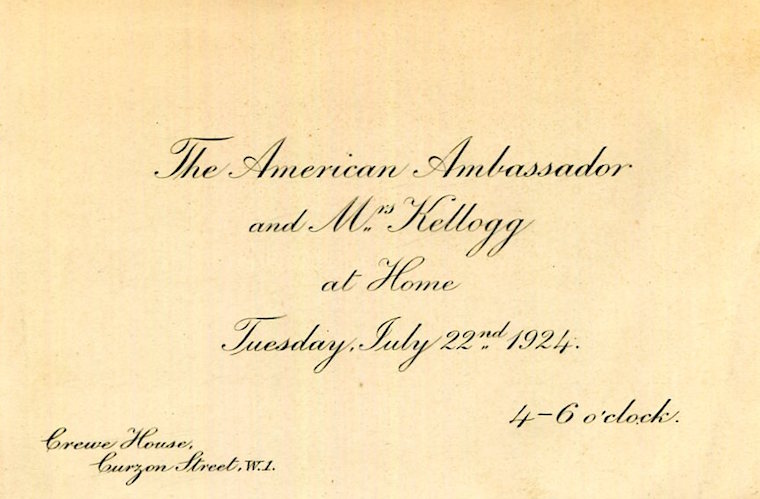 The American Ambassador
and Mrs Kellogg
at Home
Tuesday, July 22nd 1924.
4-6 o'clock.
Crewe House,
Curzon Street, W.1.